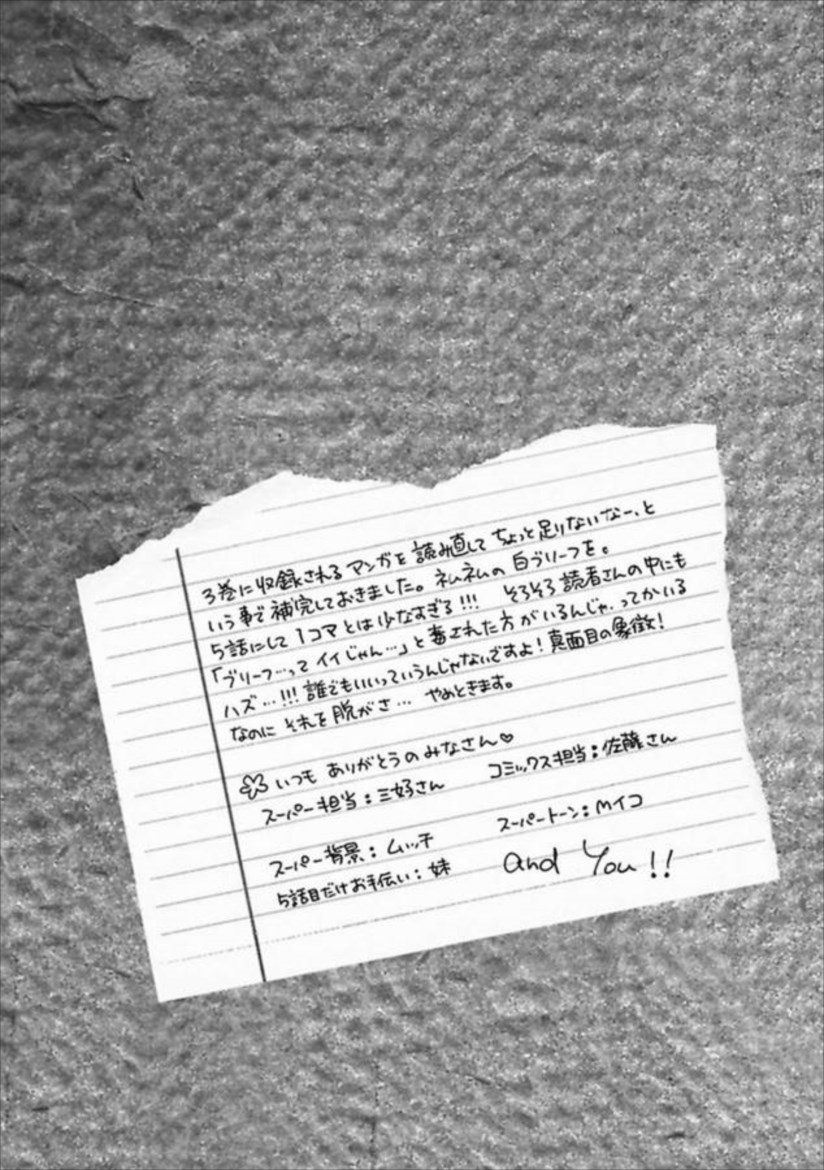 3巻に収録されるマンガを読み直してちょっと足りないなー、と
いう事で補完しておきました。ネムネムの白ブリーフを。
5話にして1コマとは少なすぎる!!! そろそろ読者さんの中にも
「ブリーフ…ってイイじゃん…」と毒された方がいるんじゃ、ってかいる
ハズ…!!!誰でもいいっていうんじゃないですよ!真面目の象徴!
なのにそれを脱がさ… やめときます。
いつもありがとうのみなさん♡
スーパー担当:三好さん コミックス担当:佐藤さん
スーパー背景:ムッチ スーパートーン:Mイコ
5話目だけお手伝い:妹 and You!!